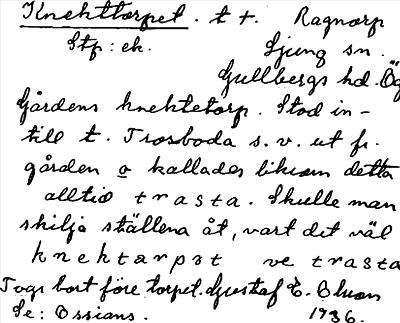 Knekttorpet. t +. Ragnorp
Stp: ek. Ljung sn.
Gullbergs hd. Ög
Gårdens knektetorp. Stod in-
till t. Trasboda s. v. ut fr.
gården o kallades liksom detta
alltid trasta. Skulle man
skilja ställena åt, vart det väl
knektarpət ve trasta
Togs bort före torpet. Gustaf E. Olson
Se: Ossians. 1936.